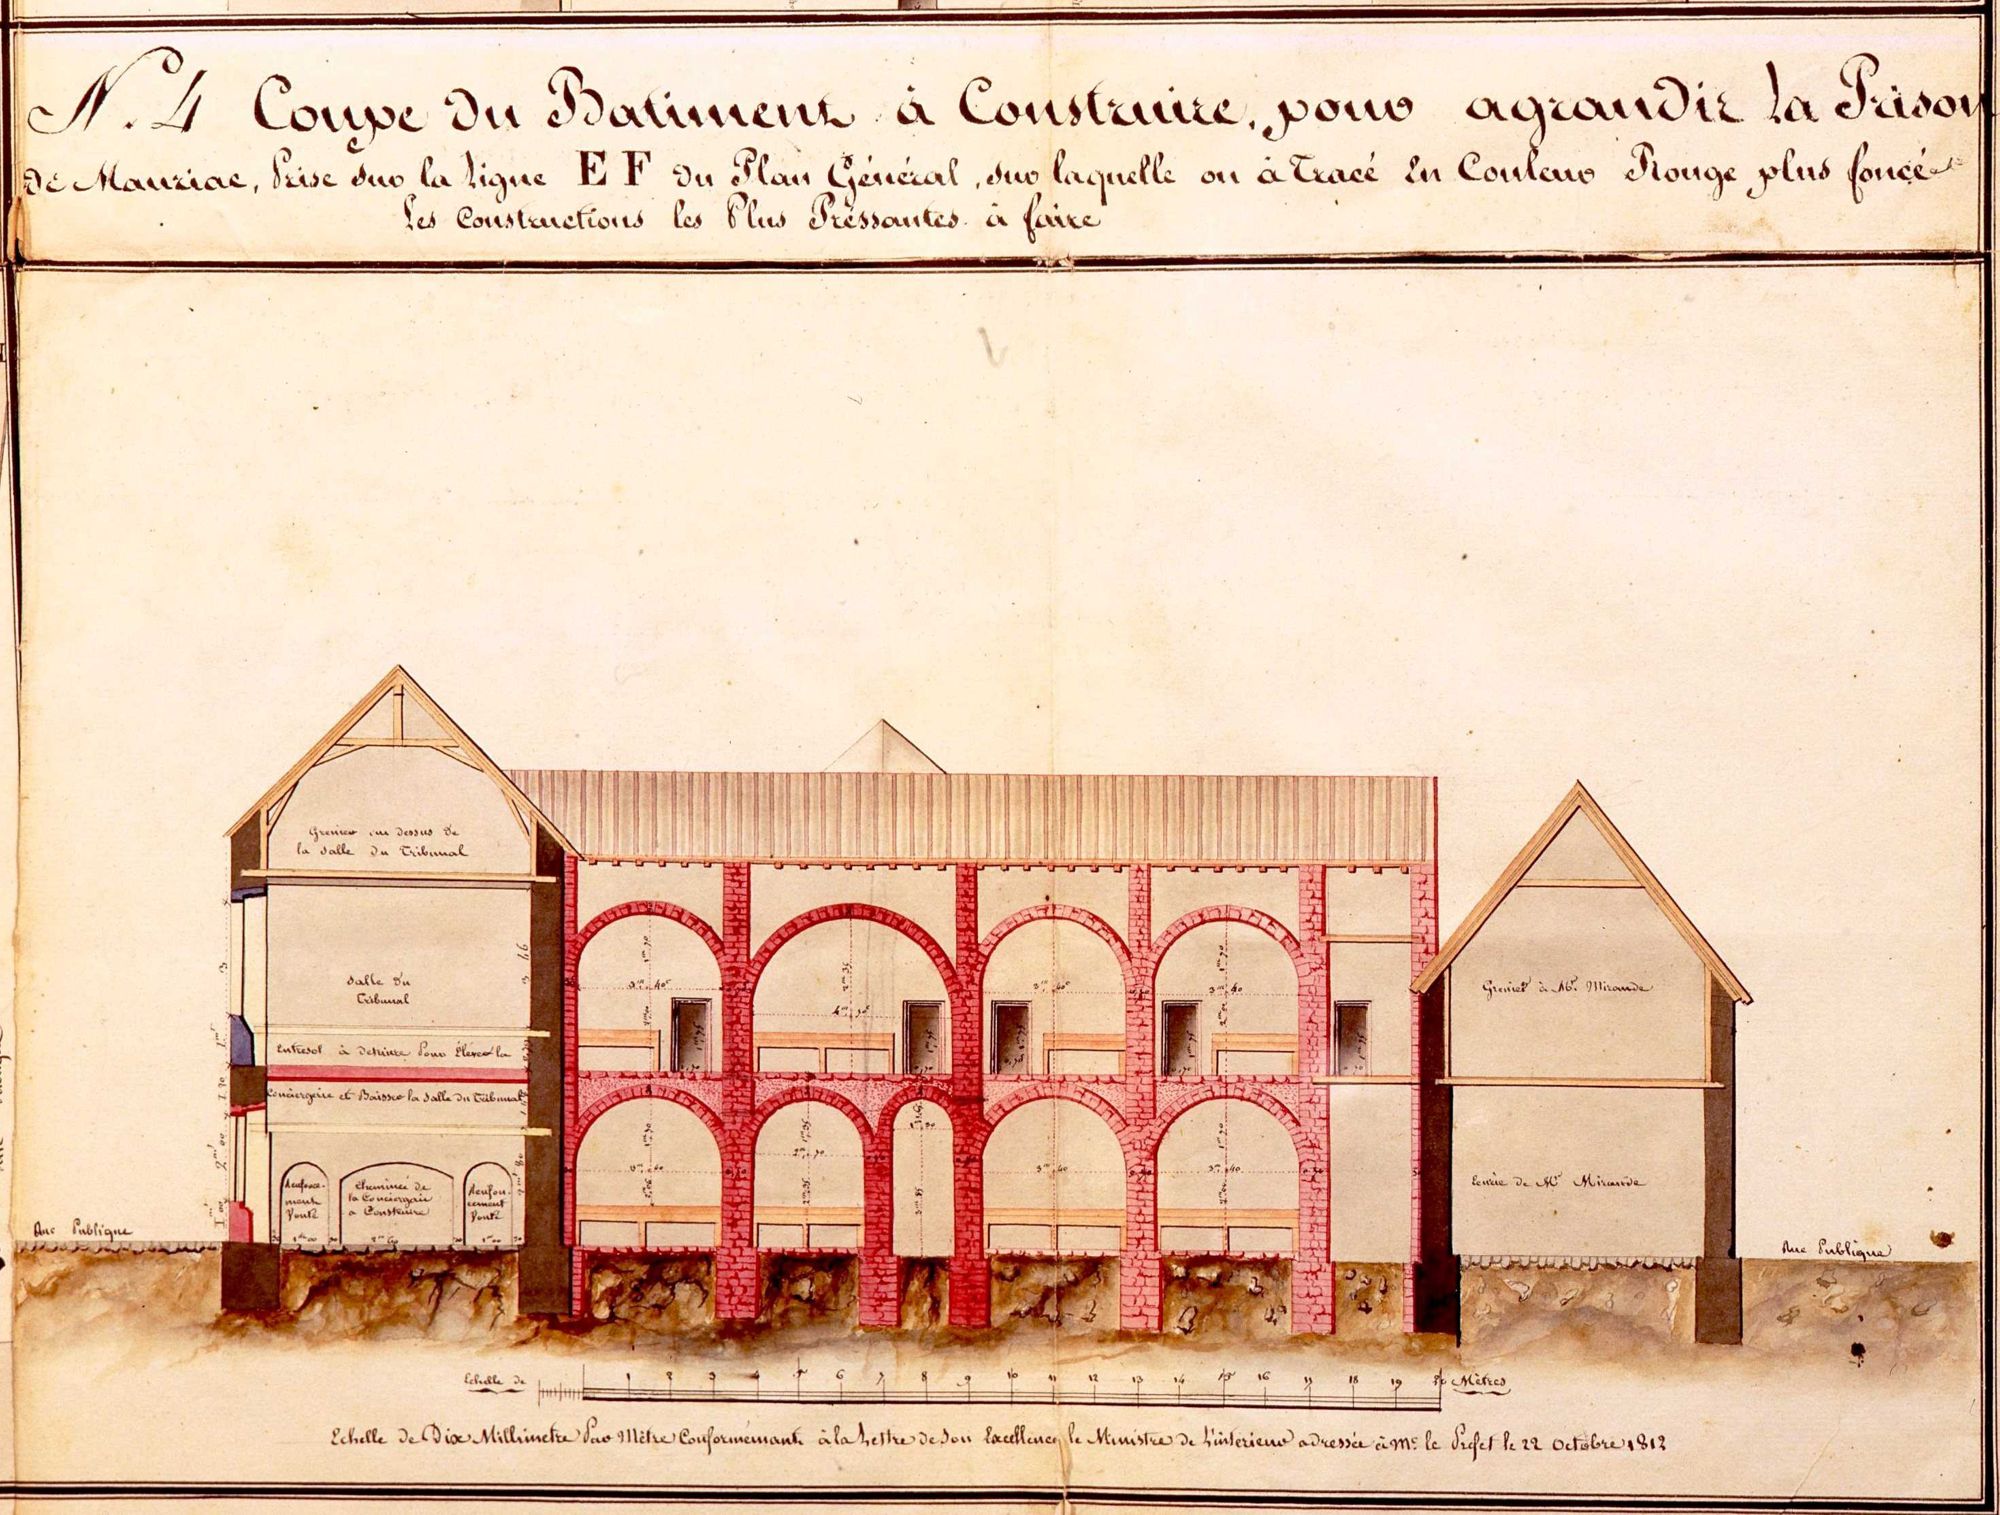 N.º 4 Coupe du Batiment à Construire, pour agrandir la Prison
de Mauriac, Prise sur la Ligne E F du Plan Général, sur laquelle on à Tracé En Couleur Rouge plus foncé
Les Constructions les Plus Pressantes à faire
Grenier au dessus de
la Salle du Tribunal
Salle du
Tribunal
Entresol à detruire Pour Élever la
Conciergerie et Baisser la Salle du Tribunal
Renfonce-
ment
Vouté
Cheminée de
la Conciergerie
a Construire
Renfon-
cement
Vouté
Rue Publique
3 66
3
3m 40c
3m 40c
3m 40
3m 40
3m 40
Grenier à Mr. Mirande
Ecurie de Mr Mirande
Rue Publique
Echelle de 1 2 3 4 5 6 7 8 9 10 11 12 13 14 15 16 17 18 19 20 Mètres
Echelle de Dix Millimetre Par Mètre Conformémant à la Lettre de Son Excellence le Ministre de L'interieur adressée à Mr le Prefet le 22 Octobre 1812